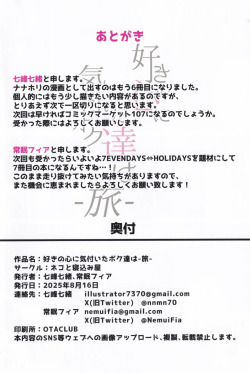 あとがき
好きの心に
気付いた
ボク達は
-旅-
七峰七緒と申します。
ナナホリの漫画として出すのはもう6冊目になりました。
個人的にはもう少し描きたい内容があるのですが、
とりあえず次で一区切りになると思います。
次回は早ければコミックマーケット107になるのでしょうか。
受かった際にはよろしくお願いします。
常眠フィアと申します。
次回も受かったらいよいよ7EVENDAYS⇔HOLIDAYSを題材にして
7冊目の本になるんですね…！
このまま走り抜けてみたい気持ちがありますので、
また機会に恵まれましたらよろしくお願い致します！
奥付
作品名：好きの心に気付いたボク達は-旅-
サークル：ネコと寝込み屋
発行者：七峰七緒、常眠フィア
発行日：2025年8月16日
連絡先：七峰七緒 illustrator7370@gmail.com
X(旧Twitter) @nnmn70
常眠フィア nemuifia@gmail.com
X(旧Twitter) @NemuiFia
印刷所：OTACLUB
本内容のSNS等ウェブへの画像アップロード、複製、転載禁止します。